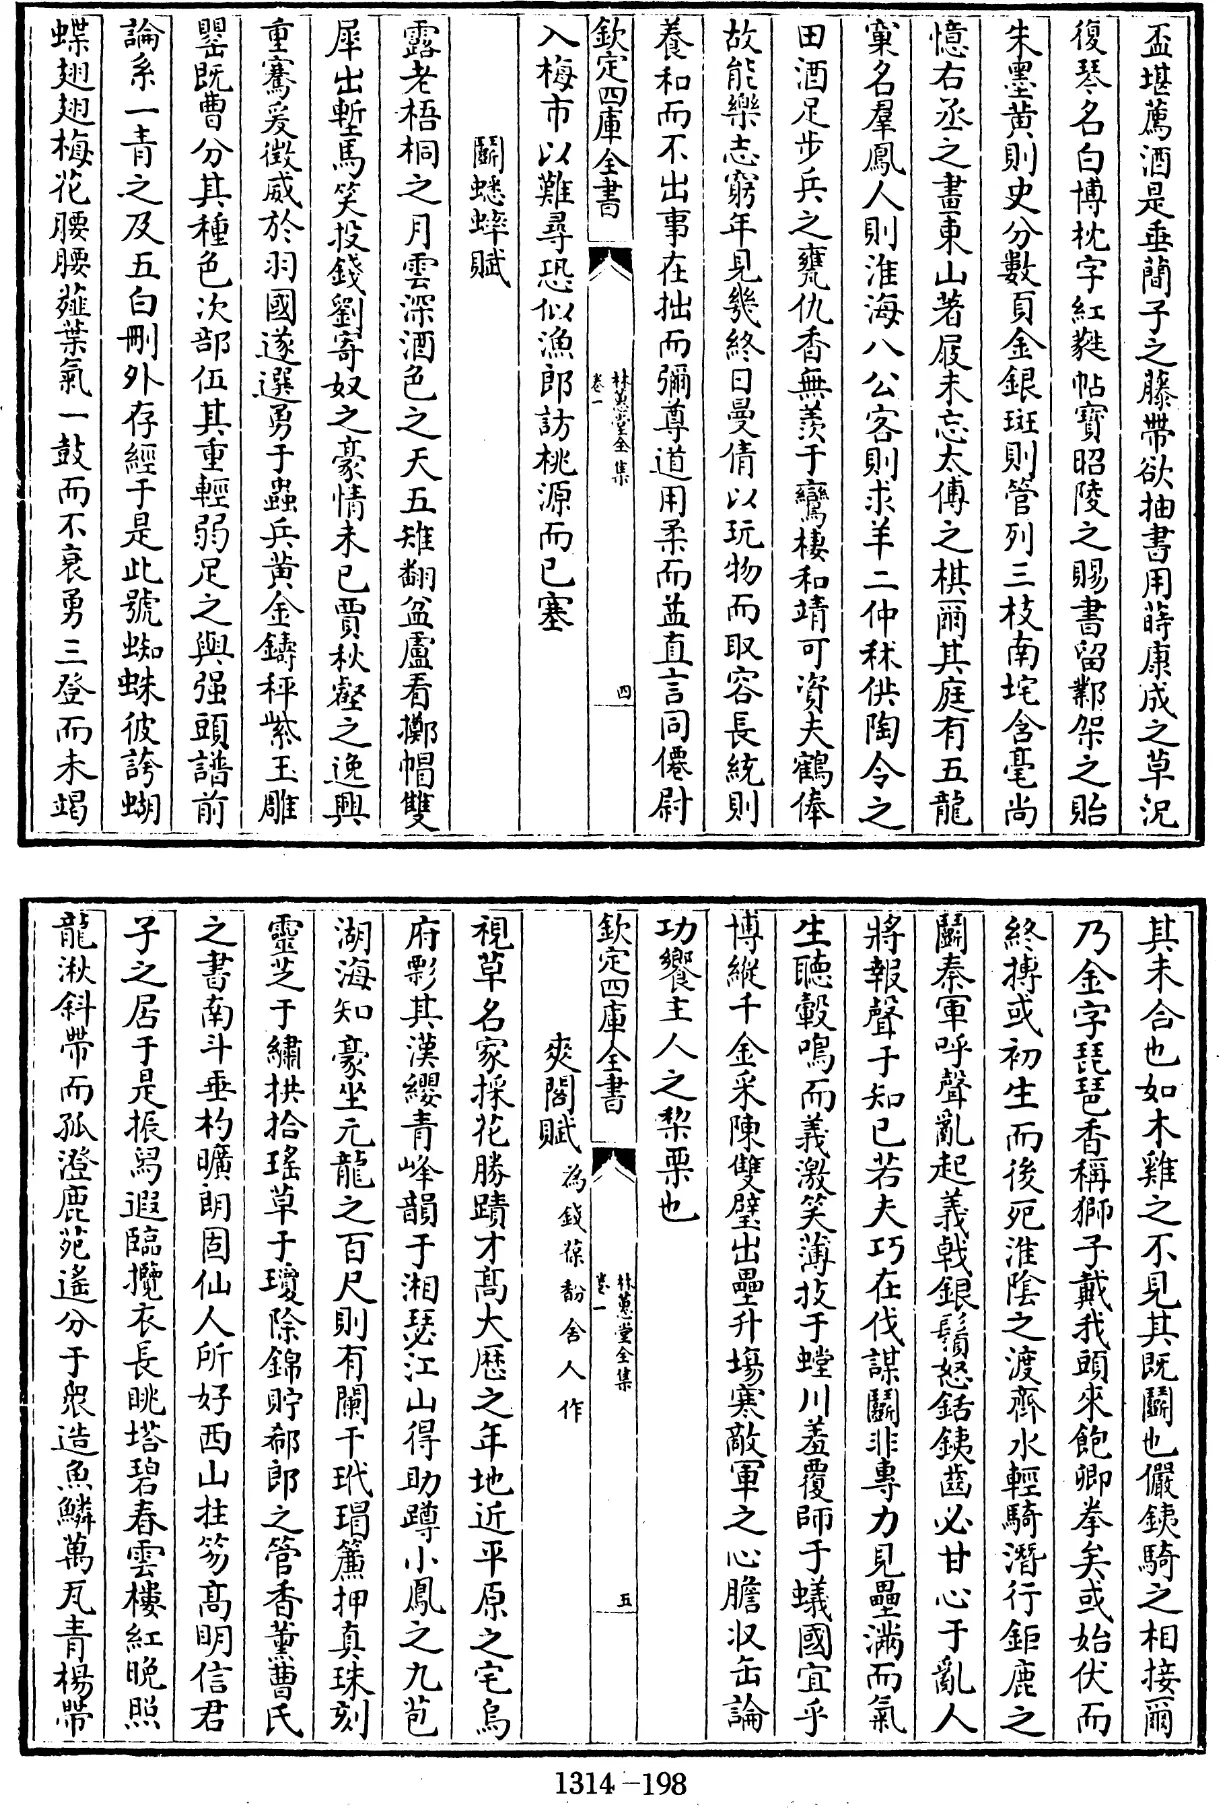 盃堪薦酒是垂蕳子之藤帶欲抽書用蒔康成之草況
復琴名白博枕字紅蕤帖寶昭陵之賜書留鄴架之貽
朱墨黄則史分數頁金銀斑則管列三枝南垞含毫尚
憶右丞之畫東山著屐未忘太傅之棋爾其庭有五龍
窠名羣鳳人則淮海八公客則求羊二仲秫供陶令之
田酒足步兵之甕仇香無羨于鸞棲和靖可資夫鶴俸
故能樂志窮年見幾終日曼倩以玩物而取容長統則
養和而不出事在拙而彌尊道用柔而益直言同僊尉
欽定四庫全書
林蕙堂全集
卷一
四
入梅市以難尋恐似漁郎訪桃源而已塞
鬭蟋蟀賦
露老梧桐之月雲深酒色之天五雉翻盆盧看擲帽雙
犀出塹馬笑投錢劉寄奴之豪情未已賈秋壑之逸興
重騫爰徴威於羽國遂選勇于蟲兵黄金鑄秤紫玉雕
罌既曹分其種色次部伍其重輕弱足之與强頭譜前
論系一青之及五白刪外存經于是此號蜘蛛彼誇蝴
蝶翅翅梅花腰腰薤葉氣一鼓而不衰勇三登而未竭
其未合也如木雞之不見其既鬭也儼鐵騎之相接爾
乃金字琵琶香稱獅子戴我頭來飽卿拳矣或始伏而
終搏或初生而後死淮陰之渡齊水輕騎潛行鉅鹿之
鬭秦軍呼聲亂起義戟銀鬚怒銛鐵齒必甘心于亂人
將報聲于知已若夫巧在伐謀鬭非專力見壘滿而氣
生聽轂鳴而義激笑薄技于螳川羞覆師于蟻國宜乎
博縱千金采陳雙璧出壘升塲寒敵軍之心膽収缶論
功饗主人之棃栗也
欽定四庫全書
林蕙堂全集
卷一
五
爽閣賦為錢葆馚舍人作
視草名家採花勝蹟才髙大歴之年地近平原之宅烏
府彯其漢纓青峰韻于湘瑟江山得助蹲小鳳之九苞
湖海知豪坐元龍之百尺則有闌干玳瑁簾押真珠刻
靈芝于繡栱拾瑤草于瓊除錦貯郗郎之管香薰曹氏
之書南斗垂杓曠朗固仙人所好西山拄笏髙明信君
子之居于是振舄遐臨攬衣長眺塔碧春雲樓紅晚照
龍湫斜帶而孤澄鹿苑遙分于衆造魚鱗萬瓦青楊帶
1314-198